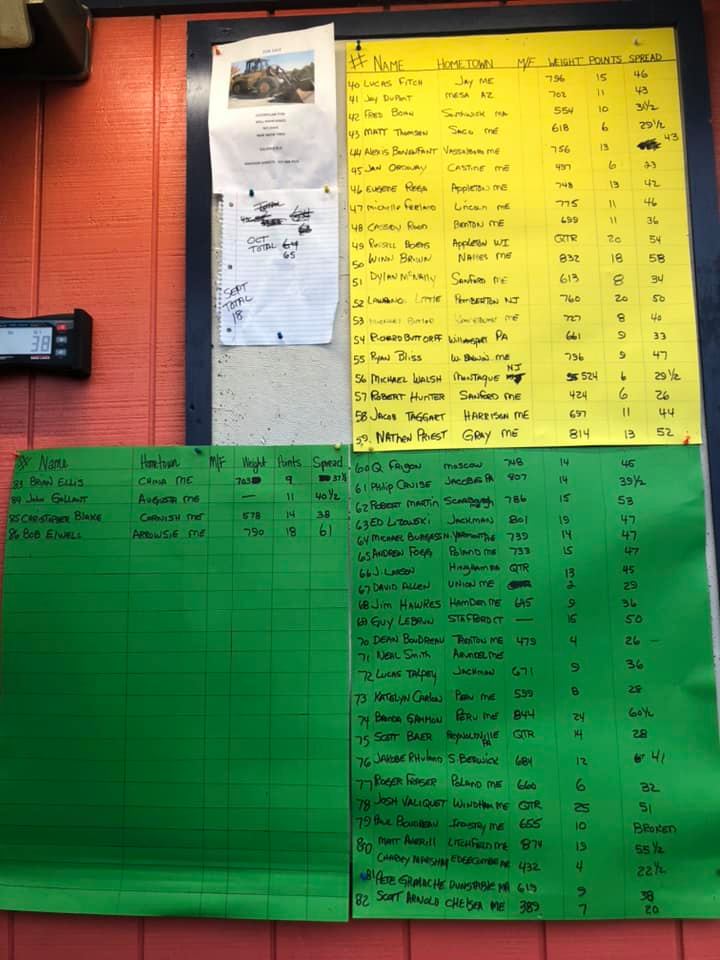 FOR SALE
TOTAL
OCT
TOTAL 64
65
SEPT
TOTAL
18
38
# NAME HOMETOWN M/F WEIGHT POINTS SPREAD
40 LUCAS FITCH JAY ME 796 15 46
41 JAY DUPONT MESA AZ 702 11 43
42 FRED BOHN SOUTHWICK MA 554 10 31 1/2
43 MATT THOMSEN SACO ME 618 6 29 1/2
44 ALEXIS BONENFANT VASSALBORO ME 756 13 43
45 JAN ORDWAY CASTINE ME 497 6 23
46 EUGENE APPLETON ME 748 13 42
47 MICHELLE LINCOLN ME 775 11 46
48 CASSIDY BENTON ME 699 11 36
49 RUSSELL APPLETON WI QTR 20 54
50 WINN BROWN NAPLES ME 832 18 58
51 DYLAN MCNALLY SANFORD ME 613 8 34
52 LITTLE PEMBERTON NJ 760 20 50
53 ME 727 8 40
54 RICHARD BUTTORFF PA 661 9 33
55 RYAN BLISS ME 796 9 47
56 MICHAEL WALSH MONTAGUE NJ 524 6 29 1/2
57 ROBERT HUNTER SANFORD ME 424 6 26
58 JACOB TAGGART HARRISON ME 697 11 44
59. NATHEN PRIEST GRAY ME 814 13 52
# Name Hometown M/F Weight Points Spread
83 BRIAN ELLIS CHINA ME 703 9 37 1/2
84 John GALLANT AUGUSTA ME — 11 40 1/2
85 CHRISTOPHER BLAKE CORNISH ME 578 14 38
86 BOB ELWELL ARROWSIC ME 790 18 61
60 Q FRIGON MOSCOW 748 14 45
61 PHILIP CRUISE PA 807 14 39 1/2
62 ROBERT MARTIN SCARBOROUGH ME 786 15 53
63 ED LIZOWSKI JACKMAN 801 19 47
64 MICHAEL BURGESS N. YARMOUTH ME 739 14 47
65 ANDREW FOGG POLAND ME 733 15 47
66 J. LARSON HINGHAM MA QTR 13 45
67 DAVID ALLEN UNION ME 2 29
68 JIM HAWKES HAMPDEN ME 645 9 36
69 GUY LEBRUN STAFFORD CT — 15 50
70 DEAN BOUDREAU TRENTON ME 479 4 26 —
71 NEAL SMITH ARUNDEL ME
72 LUCAS TALPEY JACKMAN 671 9 36
73 KATELYN CARLTON PERU ME 599 8 28
74 BRENDA GAMMON PERU ME 844 24 60 1/2
75 SCOTT BAER REYNOLDSVILLE PA QTR 14 28
76 S. BERWICK 684 12 41
77 ROGER FRASER POLAND ME 660 6 32
78 JOSH VALIQUET WINDHAM ME QTR 25 51
79 PAUL BOUDREAU INDUSTRY ME 655 10 BROKEN
80 MATT AVERILL LITCHFIELD ME 874 19 55 1/2
EDGECOMB ME 432 4 22 1/2
81 PETE GAMACHE DUNSTABLE MA 619 9 38
82 SCOTT ARNOLD CHELSEA ME 389 7 20